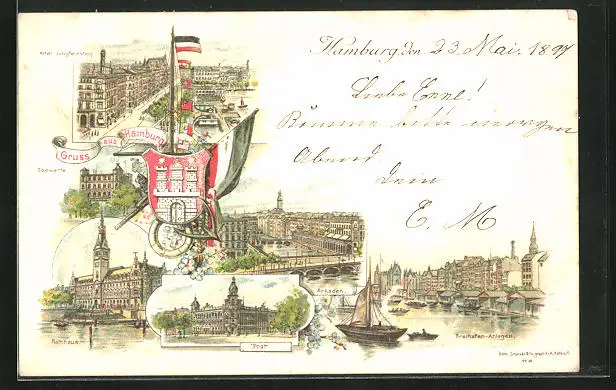 Alter Jungfernstieg
Hamburg, den 23. Mai. 1897
Liebe
Komme bitte morgen
Abend
Dein
E. M
Gruss aus Hamburg
Seewarte
Arkaden.
Rathhaus.
Post
Freihafen-Anlagen.